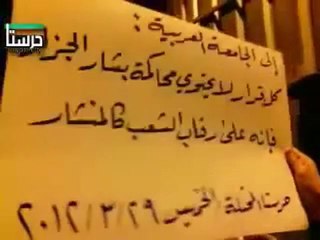 حرستا
إلى الجامعة العربية :
كل قرار لا يحتوي محاكمة بشار الجزار
فإنه على رقاب الشعب كالمنشار
حرستا المحتلة الخميس ٢٠١٢/٣/٢٩